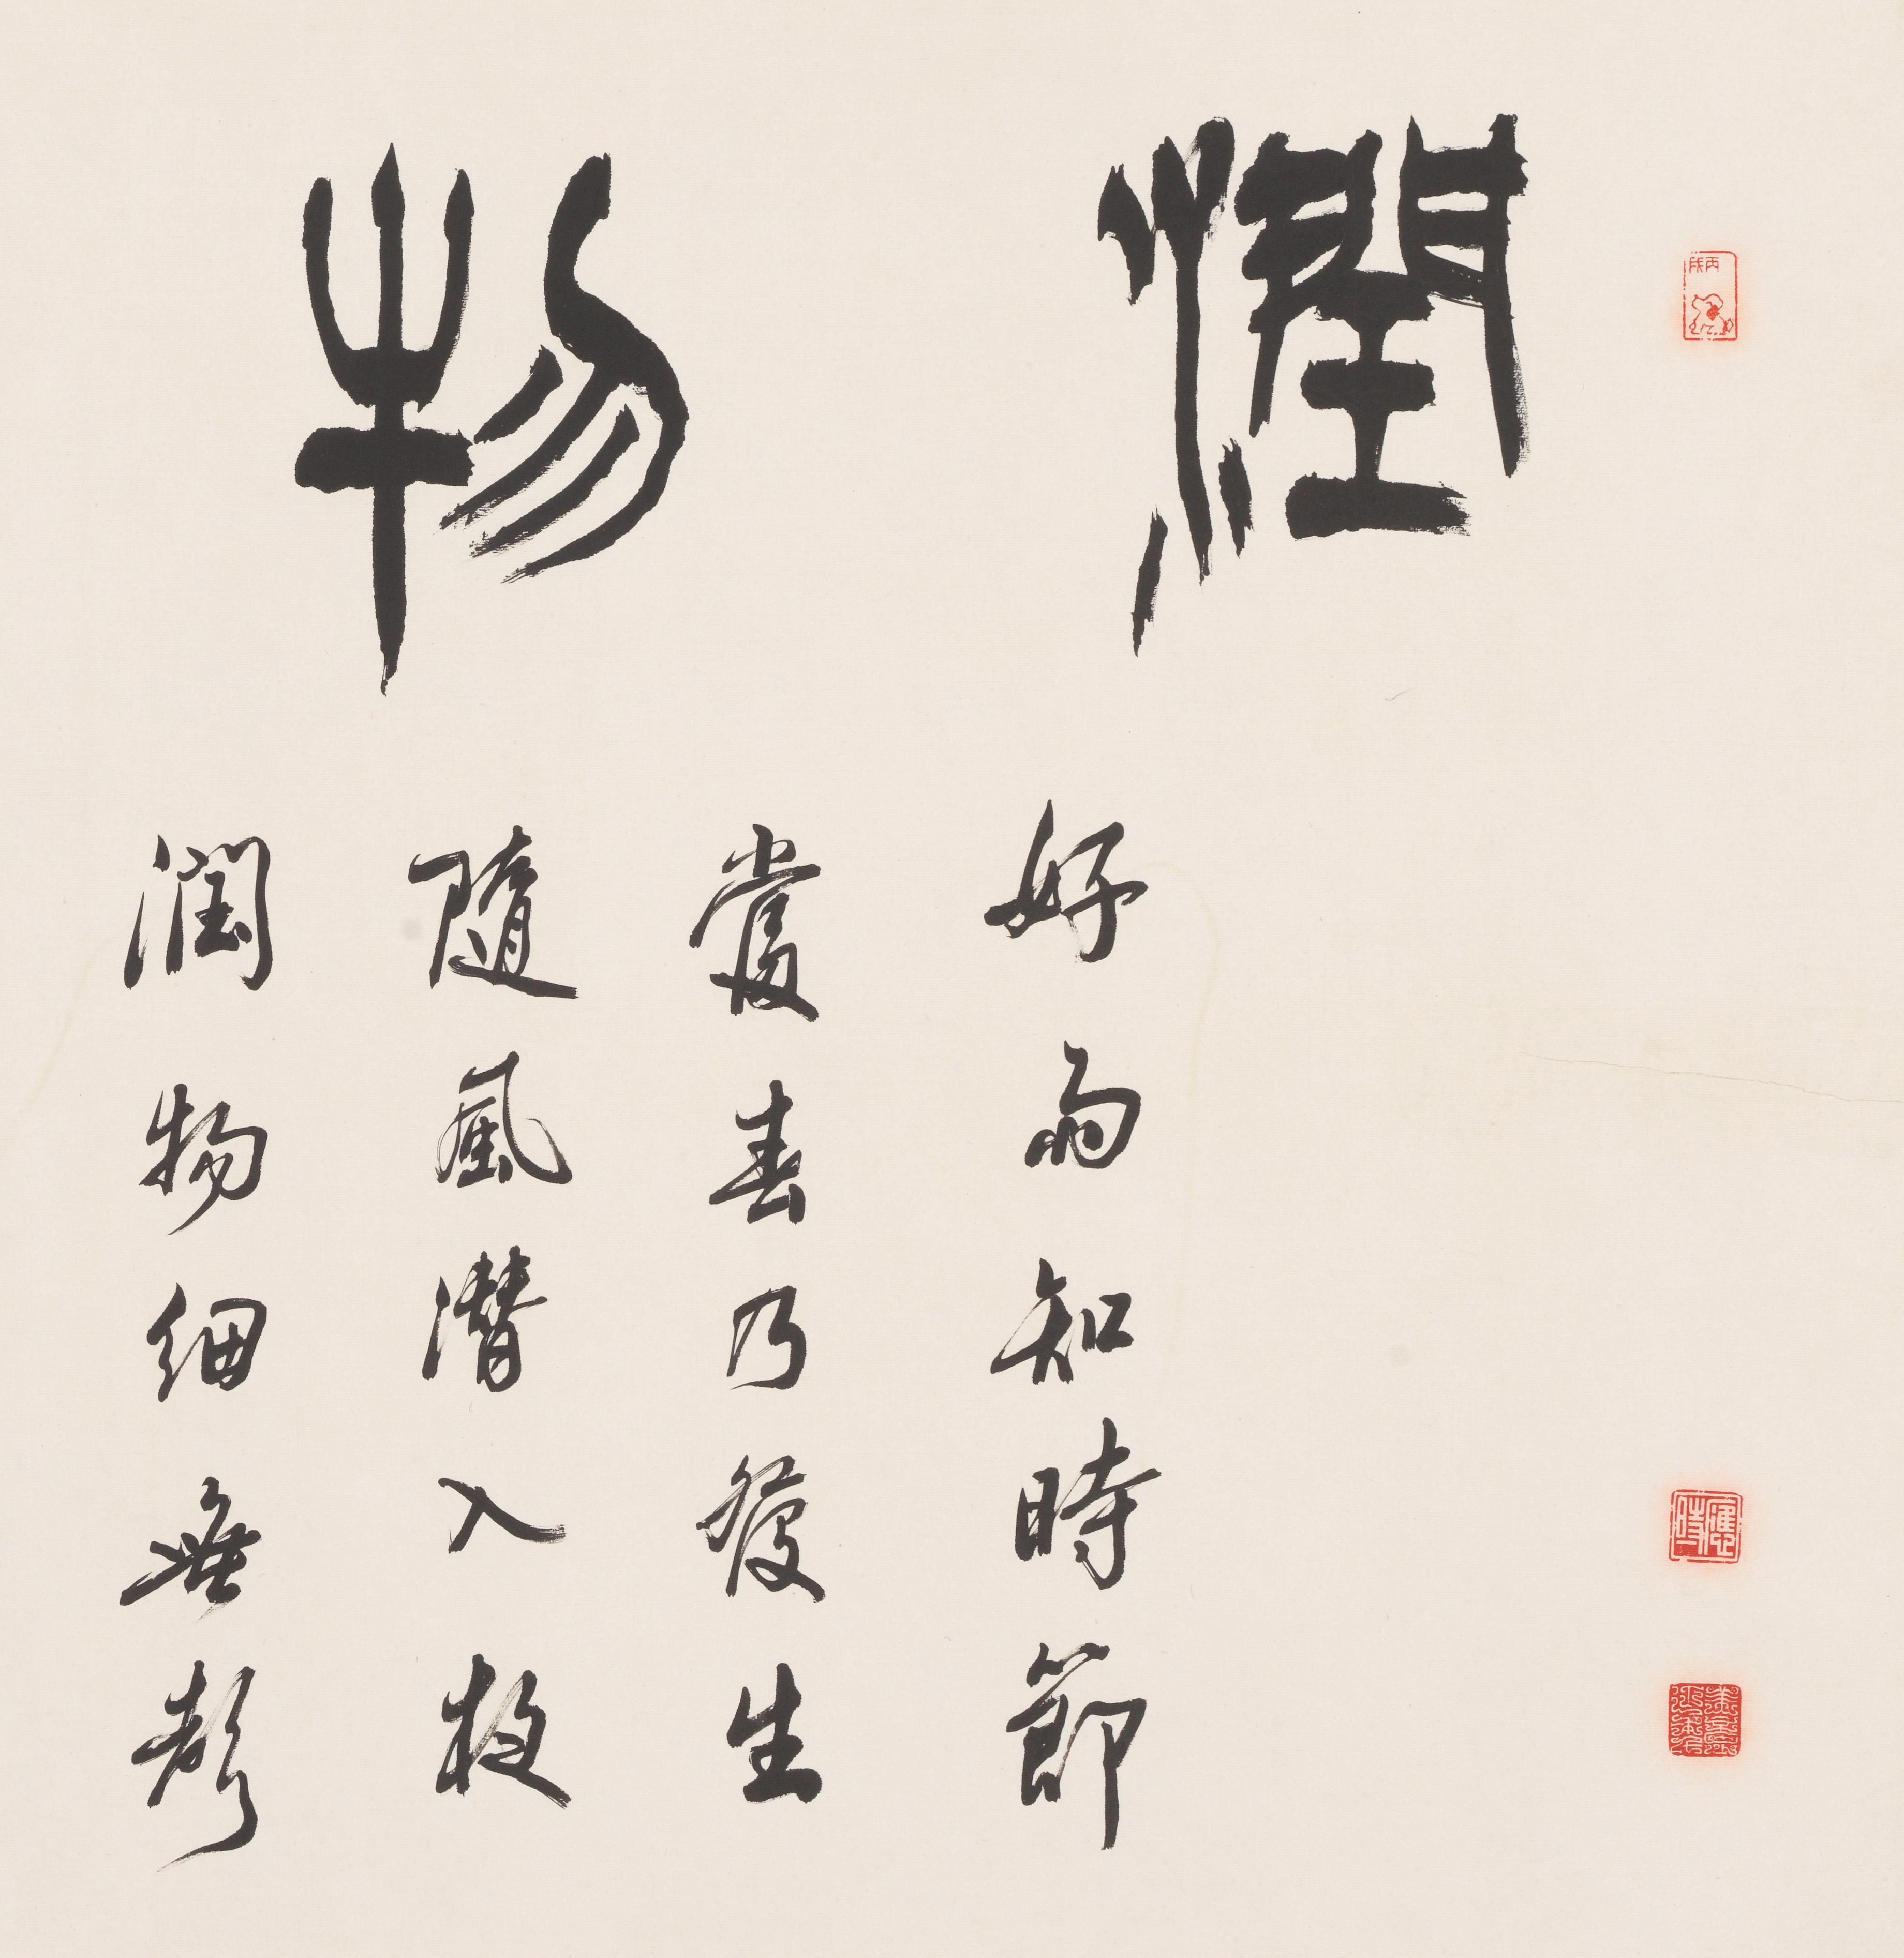 潤物
好雨知時節
當春乃發生
隨風潛入夜
潤物細無聲
丙戌
應時